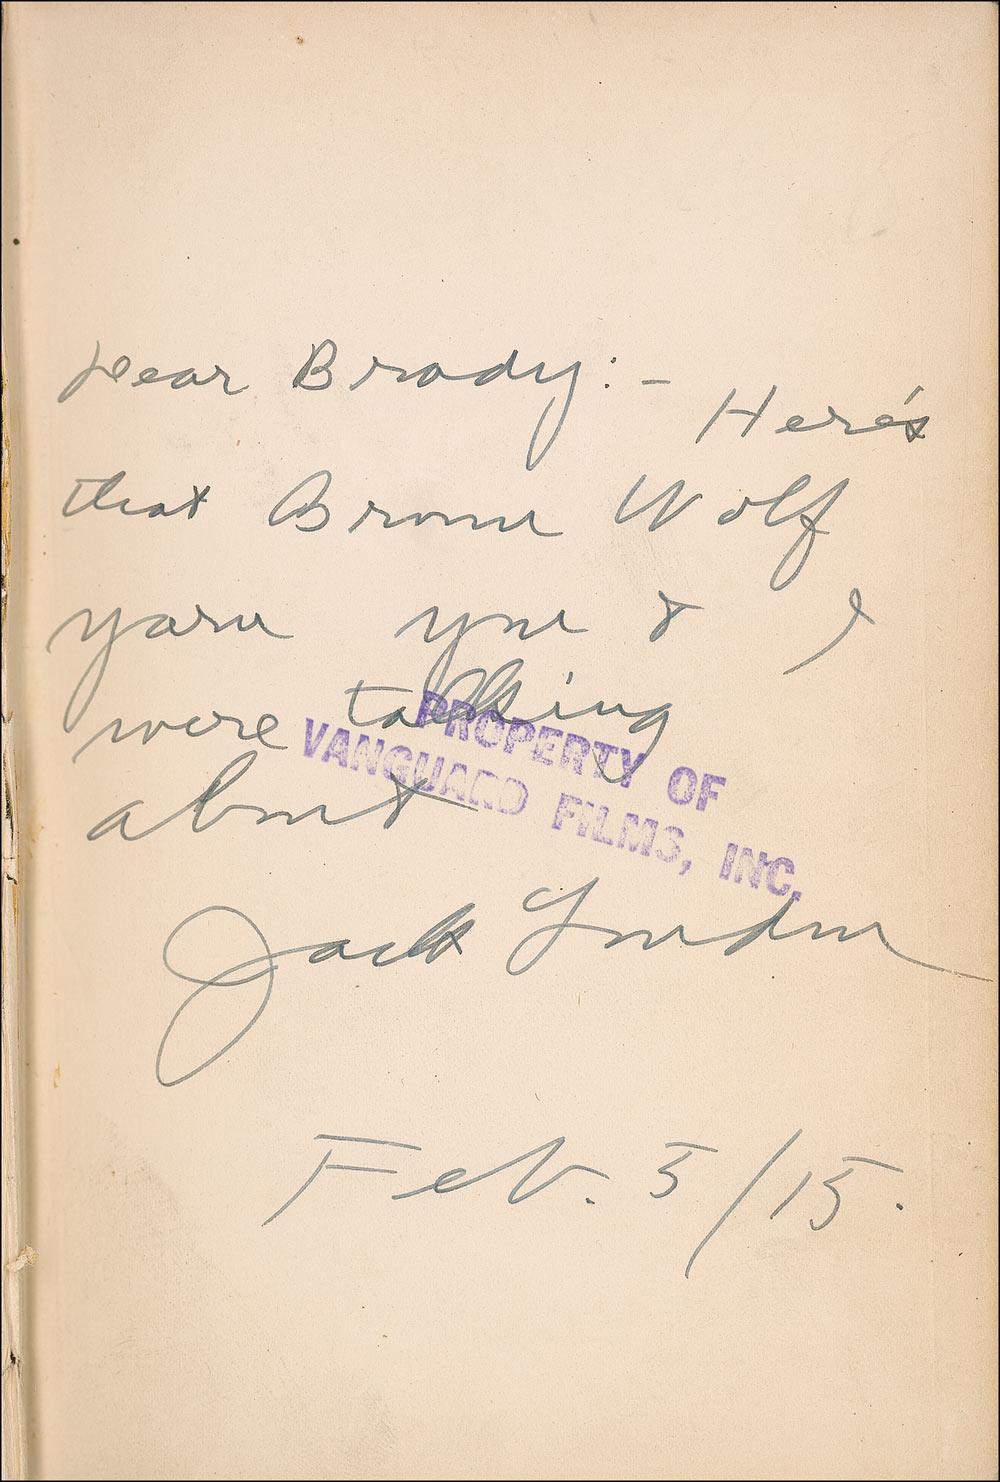 Dear Brady:-
Here's
that Brown Wolf
yarn you & I
were talking
about
PROPERTY OF
VANGUARD FILMS, INC.
Jack London
Feb. 5/15.